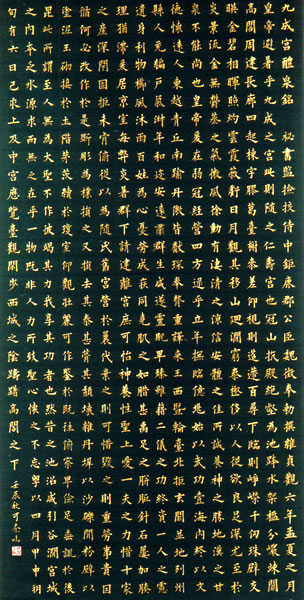 九成宮醴泉銘 秘書監檢校侍中鉅鹿郡公臣魏徵奉勅撰維貞觀六年孟夏之月
皇帝避暑乎九成之宮此則隨之仁壽宮也冠山抗殿絕壑為池跨水架楹分巖竦闕
高閣周建長廊四起棟宇膠葛臺榭參差仰視則迢遰百尋下臨則崢嶸千仞珠璧交
映金碧相暉照灼雲霞蔽虧日月觀其移山迴澗窮泰極侈以人從欲良足深尤至於
炎景流金無鬱蒸之氣微風徐動有淒清之涼信安體之佳所誠養神之勝地漢之甘
泉不能尚也皇帝爰在弱冠經營四方逮乎立年撫臨億兆始以武功壹海內終以文
德懷遠人東越青丘南踰丹徼皆獻琛奉贄重譯來王西暨輪臺北拒玄闕並地列州
縣人充編戶氣淑年和邇安遠肅群生咸遂靈貺畢臻雖藉二儀之功終資一人之慮
遺身利物櫛風沐雨百姓為心憂勞成疾同堯肌之如腊甚禹足之胼胝針石屢加腠
理猶滯爰居京室每弊炎暑群下請建離宮庶可怡神養性聖上愛一夫之力惜十家
之產深閉固拒未肯俯從以為隨氏舊宮營於曩代棄之則可惜毀之則重勞事貴因
循何必改作於是斲彫為樸損之又損去其泰甚葺其頹壞雜丹墀以沙礫間粉壁以塗
泥玉砌接於土階茅茨續於瓊室仰觀壯麗可作鑒於既往俯察卑儉足垂訓於後
昆此所謂至人無為大聖不作彼竭其力我享其功者也然昔之池沼咸引谷澗宮城
之內本乏水源求而無之在乎一物既非人力所致聖心懷之不忘粵以四月甲申朔
旬有六日己亥上及中宮歷覽臺觀閒步西城之陰躊躇高閣之下 壬辰秋